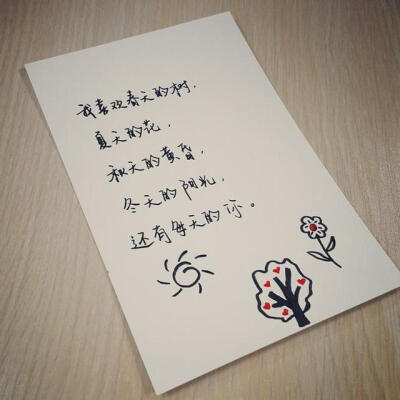 我喜欢春天的树,
夏天的花,
秋天的黄昏,
冬天的阳光,
还有每天的你。